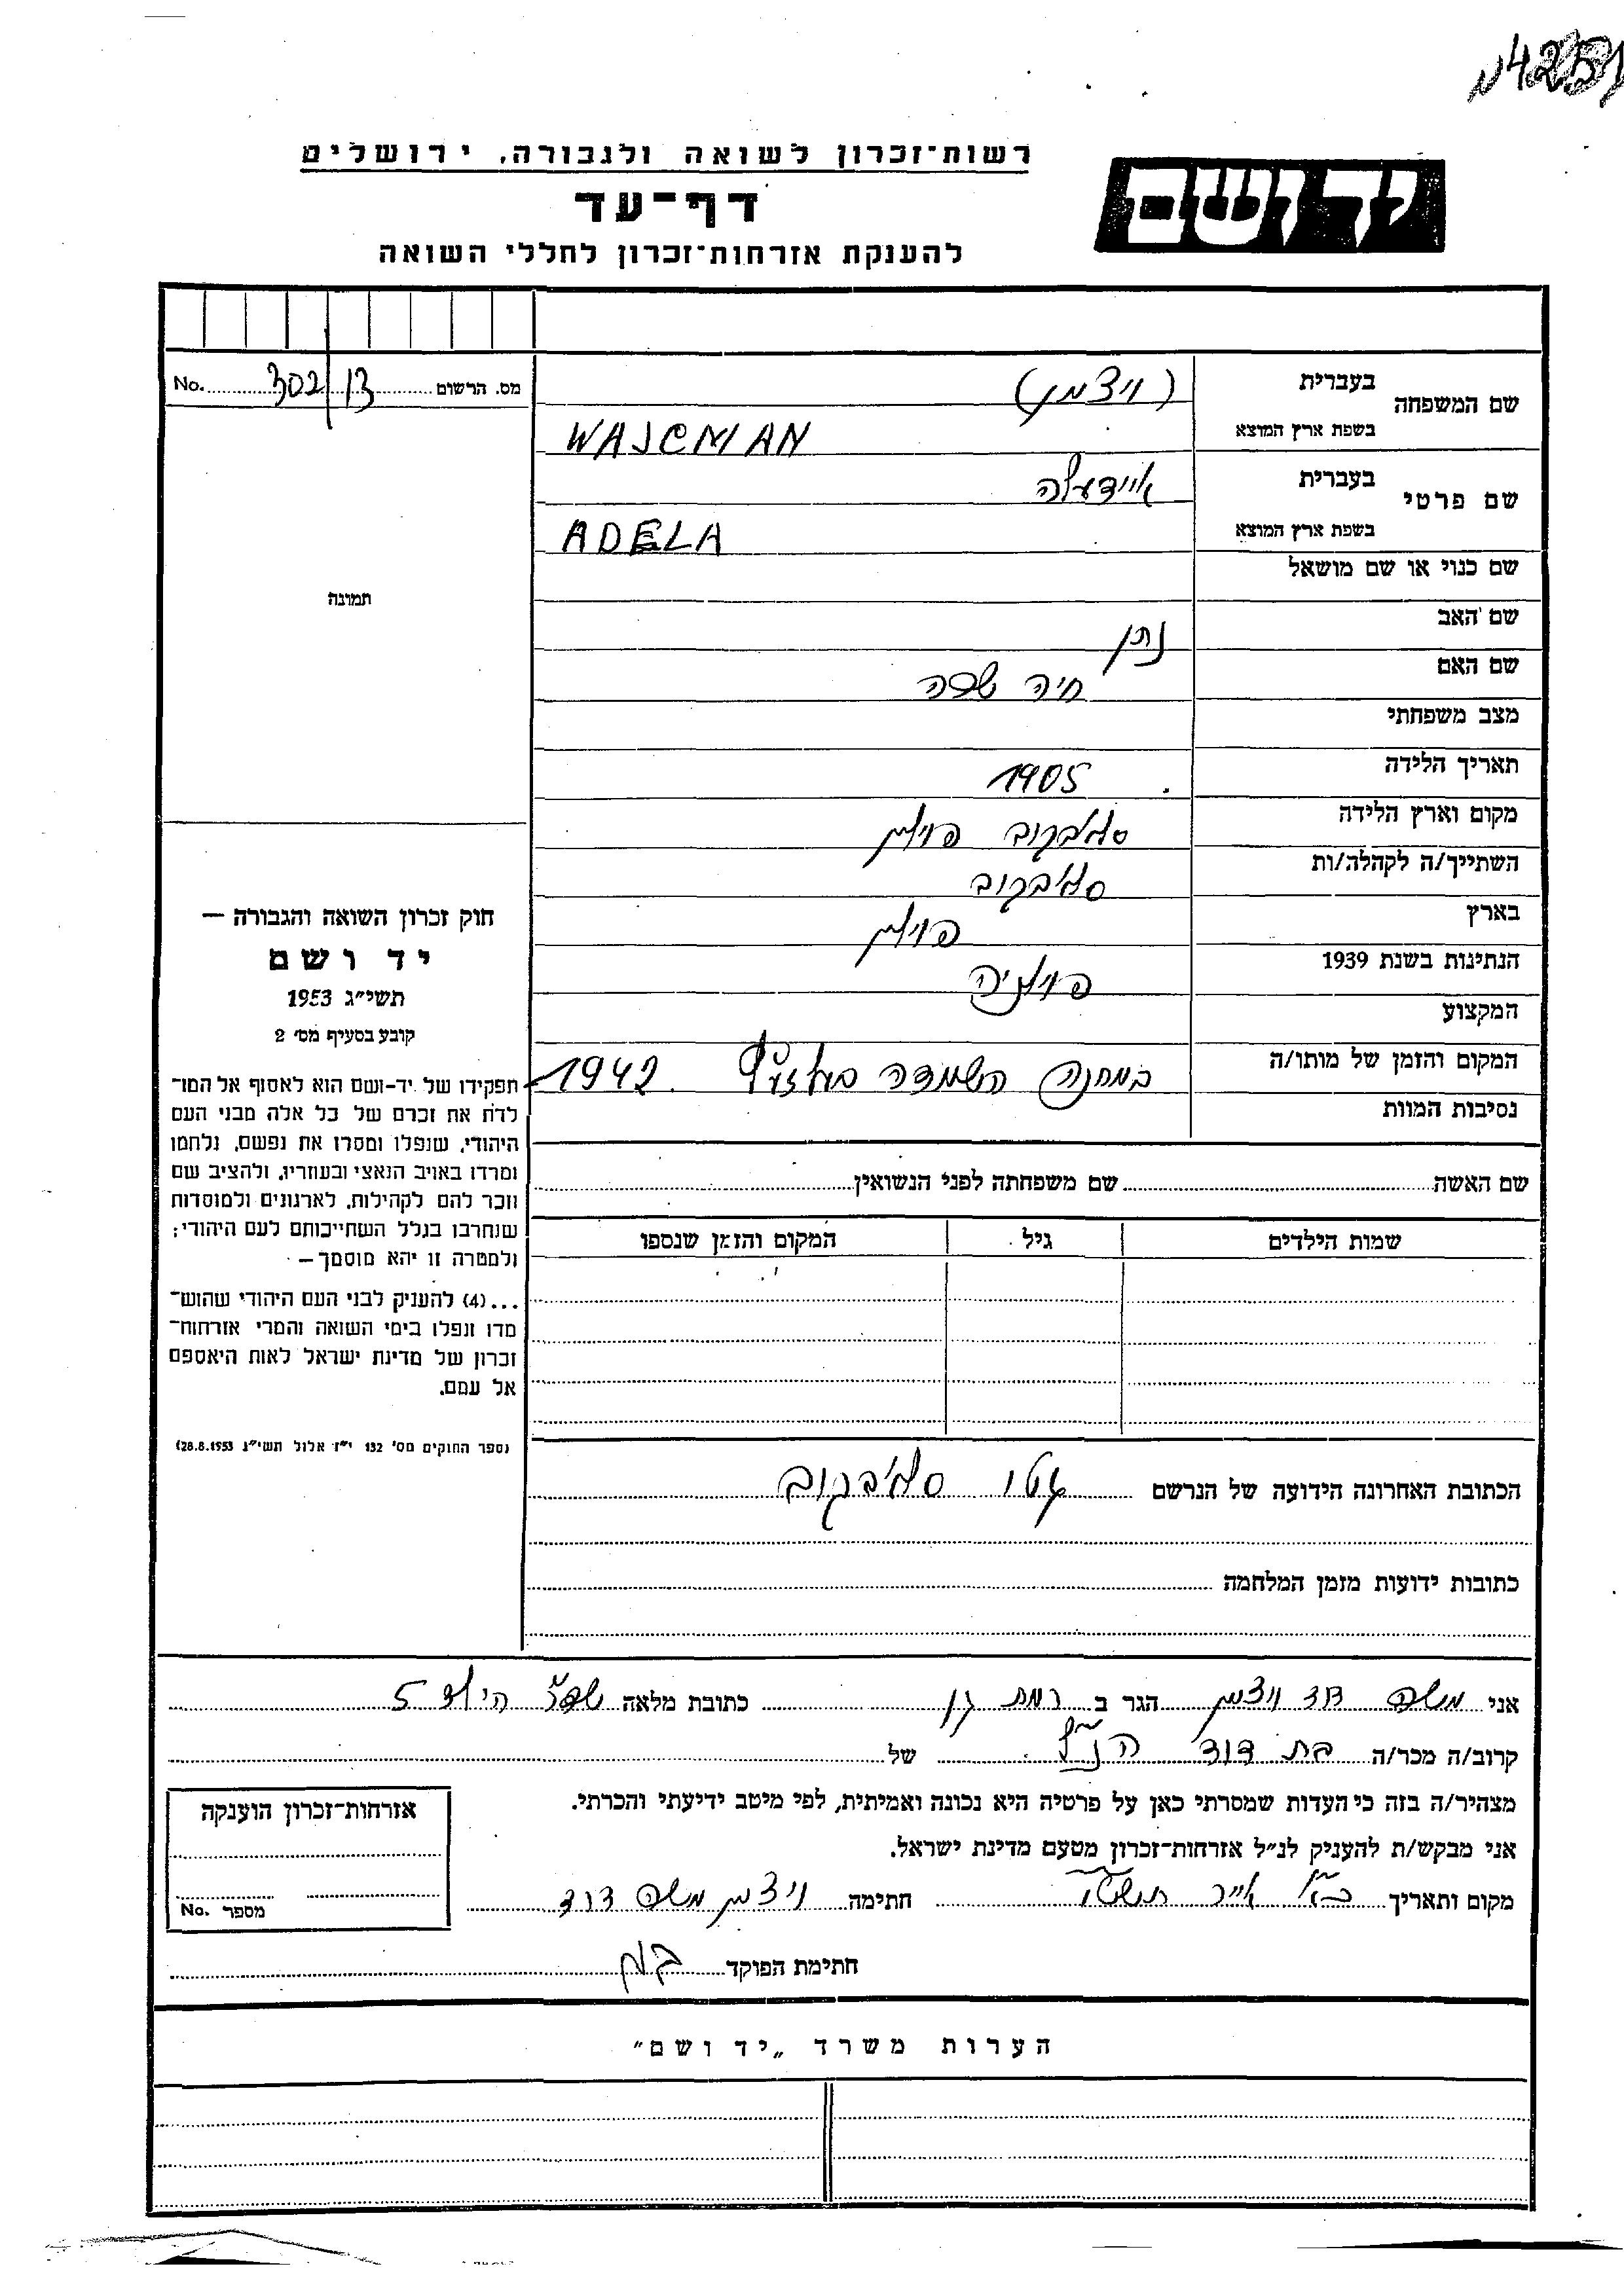 4251
רשות־זכרון לשואה ולגבורה, ירושלים
יד ושם
דף־עד
להענקת אזרחות־זכרון לחללי השואה
שם המשפחה
בעברית (ויצמן)
בשפת ארץ המוצא WAJCMAN
מס. הרשום 302/13 No.
שם פרטי
בעברית איידעלה
בשפת ארץ המוצא ADELA
שם כנוי או שם מושאל
תמונה
שם האב נתן
שם האם חיה שרה
מצב משפחתי
תאריך הלידה 1905
מקום וארץ הלידה פולין
השתייך/ה לקהלה/ות
בארץ פולין
הנתינות בשנת 1939 פולניה
המקצוע
המקום והזמן של מותו/ה במחנה השמדה 1942
נסיבות המוות
חוק זכרון השואה והגבורה —
יד ושם
תשי״ג 1953
קובע בסעיף מס׳ 2
תפקידו של יד-ושם הוא לאסוף אל המו־
לדת את זכרם של כל אלה מבני העם
היהודי, שנפלו ומסרו את נפשם, נלחמו
ומרדו באויב הנאצי ובעוזריו, ולהציב שם
וזכר להם לקהילות, לארגונים ולמוסדות
שנחרבו בגלל השתייכותם לעם היהודי;
ולמטרה זו יהא מוסמך —
...(4) להעניק לבני העם היהודי שהוש־
מדו ונפלו בימי השואה והמרי אזרחות־
זכרון של מדינת ישראל לאות היאספם
אל עמם.
(ספר החוקים מס׳ 132 י״ז אלול תשי״ג 28.8.1953)
שם האשה שם משפחתה לפני הנשואין
שמות הילדים גיל המקום והזמן שנספו
הכתובת האחרונה הידועה של הנרשם גטו
כתובות ידועות מזמן המלחמה
אני משה דוד ויצמן הגר ב רמת גן כתובת מלאה 5
קרוב/ה מכר/ה בת דוד הנ״ל של
מצהיר/ה בזה כי העדות שמסרתי כאן על פרטיה היא נכונה ואמיתית, לפי מיטב ידיעתי והכרתי.
אני מבקש/ת להעניק לנ״ל אזרחות־זכרון מטעם מדינת ישראל.
מקום ותאריך אייר חתימה ויצמן משה דוד
אזרחות־זכרון הוענקה
מספר No.
חתימת הפוקד
הערות משרד „יד ושם״